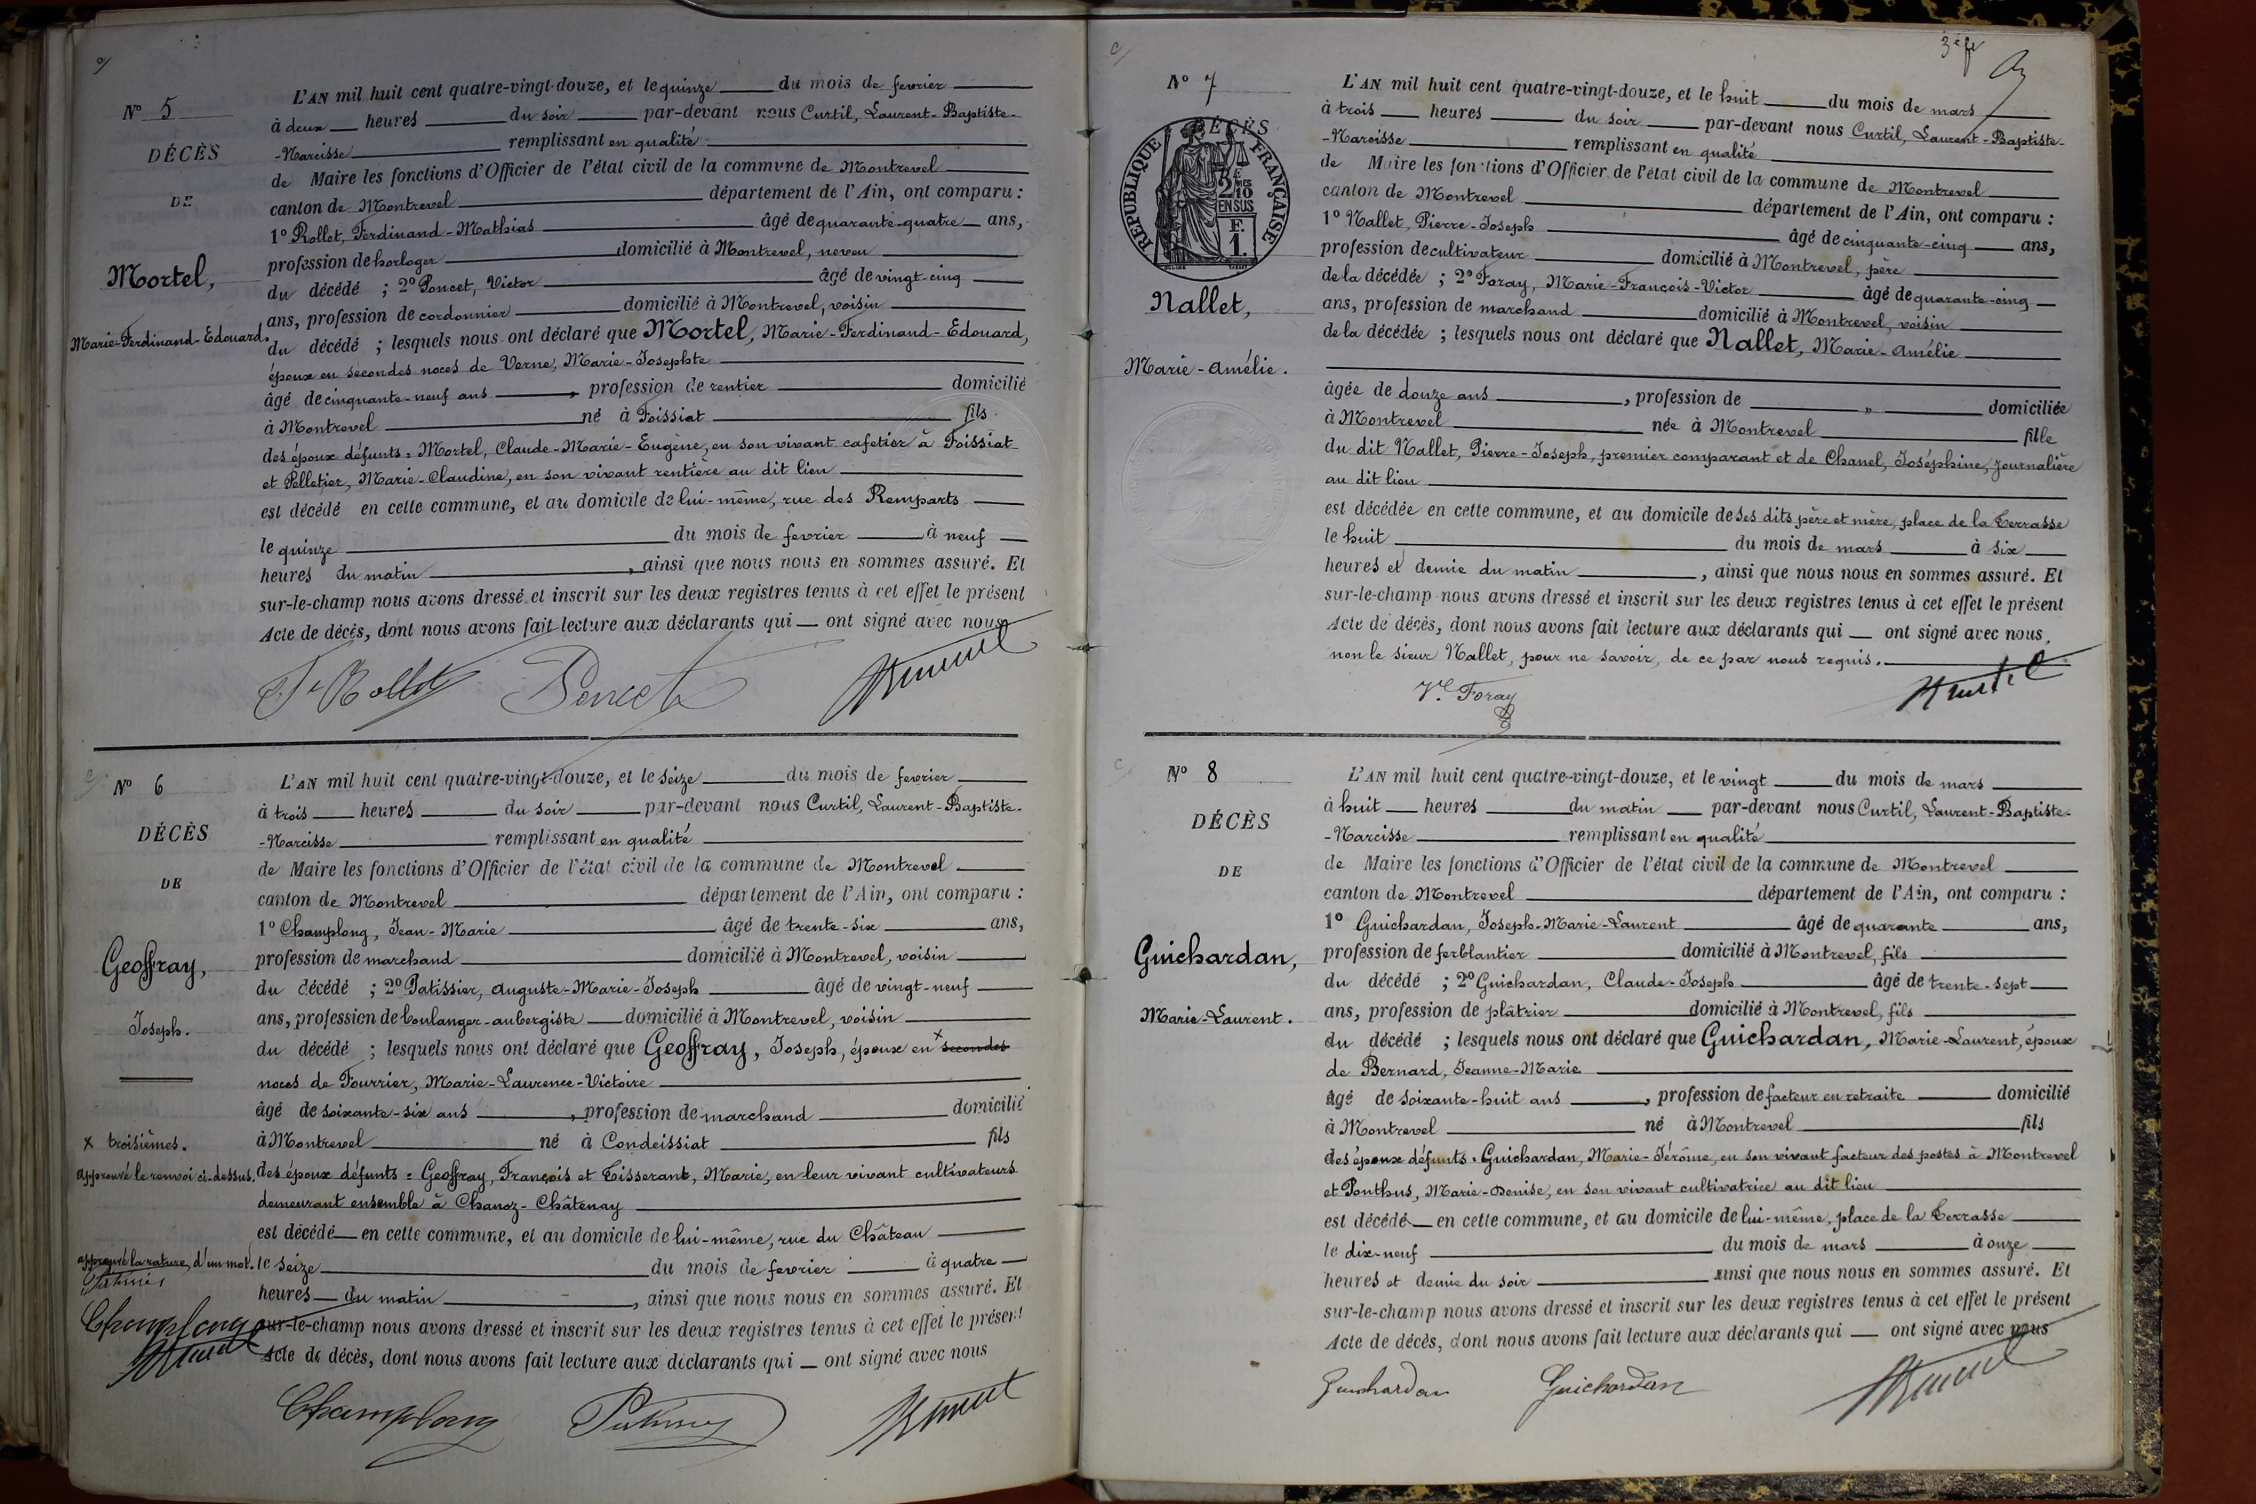 N° 5
DÉCÈS
DE
Mortel,
Marie-Ferdinand-Edouard.
L'AN mil huit cent quatre-vingt-douze, et le quinze du mois de fevrier
à deux heures du soir par-devant nous Curtil, Laurent-Baptiste-
-Narcisse remplissant en qualité
de Maire les fonctions d'Officier de l'état civil de la commune de Montrevel
canton de Montrevel département de l'Ain, ont comparu :
1° Rollet, Ferdinand-Mathias âgé de quarante-quatre ans,
profession de horloger domicilié à Montrevel, neveu
du décédé ; 2° Poncet, Victor âgé de vingt-cinq
ans, profession de cordonnier domicilié à Montrevel, voisin
du décédé ; lesquels nous ont déclaré que Mortel, Marie-Ferdinand-Edouard,
époux en secondes noces de Verne, Marie-Josephte
âgé de cinquante-neuf ans , profession de rentier domicilié
à Montrevel né à Foissiat fils
des époux défunts : Mortel, Claude-Marie-Eugène, en son vivant cafetier à Foissiat
et Pelletier, Marie-Claudine, en son vivant rentière au dit lieu
est décédé en cette commune, et au domicile de lui-même, rue des Remparts
le quinze du mois de fevrier à neuf
heures du matin , ainsi que nous nous en sommes assuré. Et
sur-le-champ nous avons dressé et inscrit sur les deux registres tenus à cet effet le présent
Acte de décès, dont nous avons fait lecture aux déclarants qui ont signé avec nous
Fd Rollet Poncet
N° 6
DÉCÈS
DE
Geoffray,
Joseph.
L'AN mil huit cent quatre-vingt-douze, et le seize du mois de fevrier
à trois heures du soir par-devant nous Curtil, Laurent-Baptiste-
-Narcisse remplissant en qualité
de Maire les fonctions d'Officier de l'état civil de la commune de Montrevel
canton de Montrevel département de l'Ain, ont comparu :
1° Champlong, Jean-Marie âgé de trente-six ans,
profession de marchand domicilié à Montrevel, voisin
du décédé ; 2° Patissier, Auguste-Marie-Joseph âgé de vingt-neuf
ans, profession de boulanger-aubergiste domicilié à Montrevel, voisin
du décédé ; lesquels nous ont déclaré que Geoffray, Joseph, époux en × secondes
noces de Fourrier, Marie-Laurence-Victoire
âgé de soixante-six ans , profession de marchand domicilié
à Montrevel né à Condeissiat fils
des époux défunts : Geoffray, François et Tisserant, Marie, en leur vivant cultivateurs
demeurant ensemble à Chanoz-Châtenay
est décédé en cette commune, et au domicile de lui-même, rue du Château
le seize du mois de fevrier à quatre
heures du matin , ainsi que nous nous en sommes assuré. Et
sur-le-champ nous avons dressé et inscrit sur les deux registres tenus à cet effet le présent
Acte de décès, dont nous avons fait lecture aux déclarants qui ont signé avec nous
× troisièmes.
Approuvé le renvoi ci-dessus.
approuvé la rature d'un mot.
Champlong
Champlong
3e f
N° 7
DÉCÈS
RÉPUBLIQUE FRANÇAISE
2 MES 10
EN SUS
F.
1.
Nallet,
Marie-Amélie.
L'AN mil huit cent quatre-vingt-douze, et le huit du mois de mars
à trois heures du soir par-devant nous Curtil, Laurent-Baptiste-
-Narcisse remplissant en qualité
de Maire les fonctions d'Officier de l'état civil de la commune de Montrevel
canton de Montrevel département de l'Ain, ont comparu :
1° Nallet, Pierre-Joseph âgé de cinquante-cinq ans,
profession de cultivateur domicilié à Montrevel, père
de la décédée ; 2° Foray, Marie-François-Victor âgé de quarante-cinq
ans, profession de marchand domicilié à Montrevel, voisin
de la décédée ; lesquels nous ont déclaré que Nallet, Marie-Amélie
âgée de douze ans , profession de " domiciliée
à Montrevel née à Montrevel fille
du dit Nallet, Pierre-Joseph, premier comparant et de Chanel, Joséphine, journalière
au dit lieu
est décédée en cette commune, et au domicile de ses dits père et mère, place de la Terrasse
le huit du mois de mars à six
heures et demie du matin , ainsi que nous nous en sommes assuré. Et
sur-le-champ nous avons dressé et inscrit sur les deux registres tenus à cet effet le présent
Acte de décès, dont nous avons fait lecture aux déclarants qui ont signé avec nous,
non le sieur Nallet, pour ne savoir, de ce par nous requis.
Vr Foray Curtil
N° 8
DÉCÈS
DE
Guichardan,
Marie-Laurent.
L'AN mil huit cent quatre-vingt-douze, et le vingt du mois de mars
à huit heures du matin par-devant nous Curtil, Laurent-Baptiste-
-Narcisse remplissant en qualité
de Maire les fonctions d'Officier de l'état civil de la commune de Montrevel
canton de Montrevel département de l'Ain, ont comparu :
1° Guichardan, Joseph-Marie-Laurent âgé de quarante ans,
profession de ferblantier domicilié à Montrevel, fils
du décédé ; 2° Guichardan, Claude-Joseph âgé de trente-sept
ans, profession de plâtrier domicilié à Montrevel, fils
du décédé ; lesquels nous ont déclaré que Guichardan, Marie-Laurent, époux
de Bernard, Jeanne-Marie
âgé de soixante-huit ans , profession de facteur en retraite domicilié
à Montrevel né à Montrevel fils
des époux défunts : Guichardan, Marie-Jérôme, en son vivant facteur des postes à Montrevel
et Ponthus, Marie-Denise, en son vivant cultivatrice au dit lieu
est décédé en cette commune, et au domicile de lui-même, place de la Terrasse
le dix-neuf du mois de mars à onze
heures et demie du soir ainsi que nous nous en sommes assuré. Et
sur-le-champ nous avons dressé et inscrit sur les deux registres tenus à cet effet le présent
Acte de décès, dont nous avons fait lecture aux déclarants qui ont signé avec nous
Guichardan Guichardan